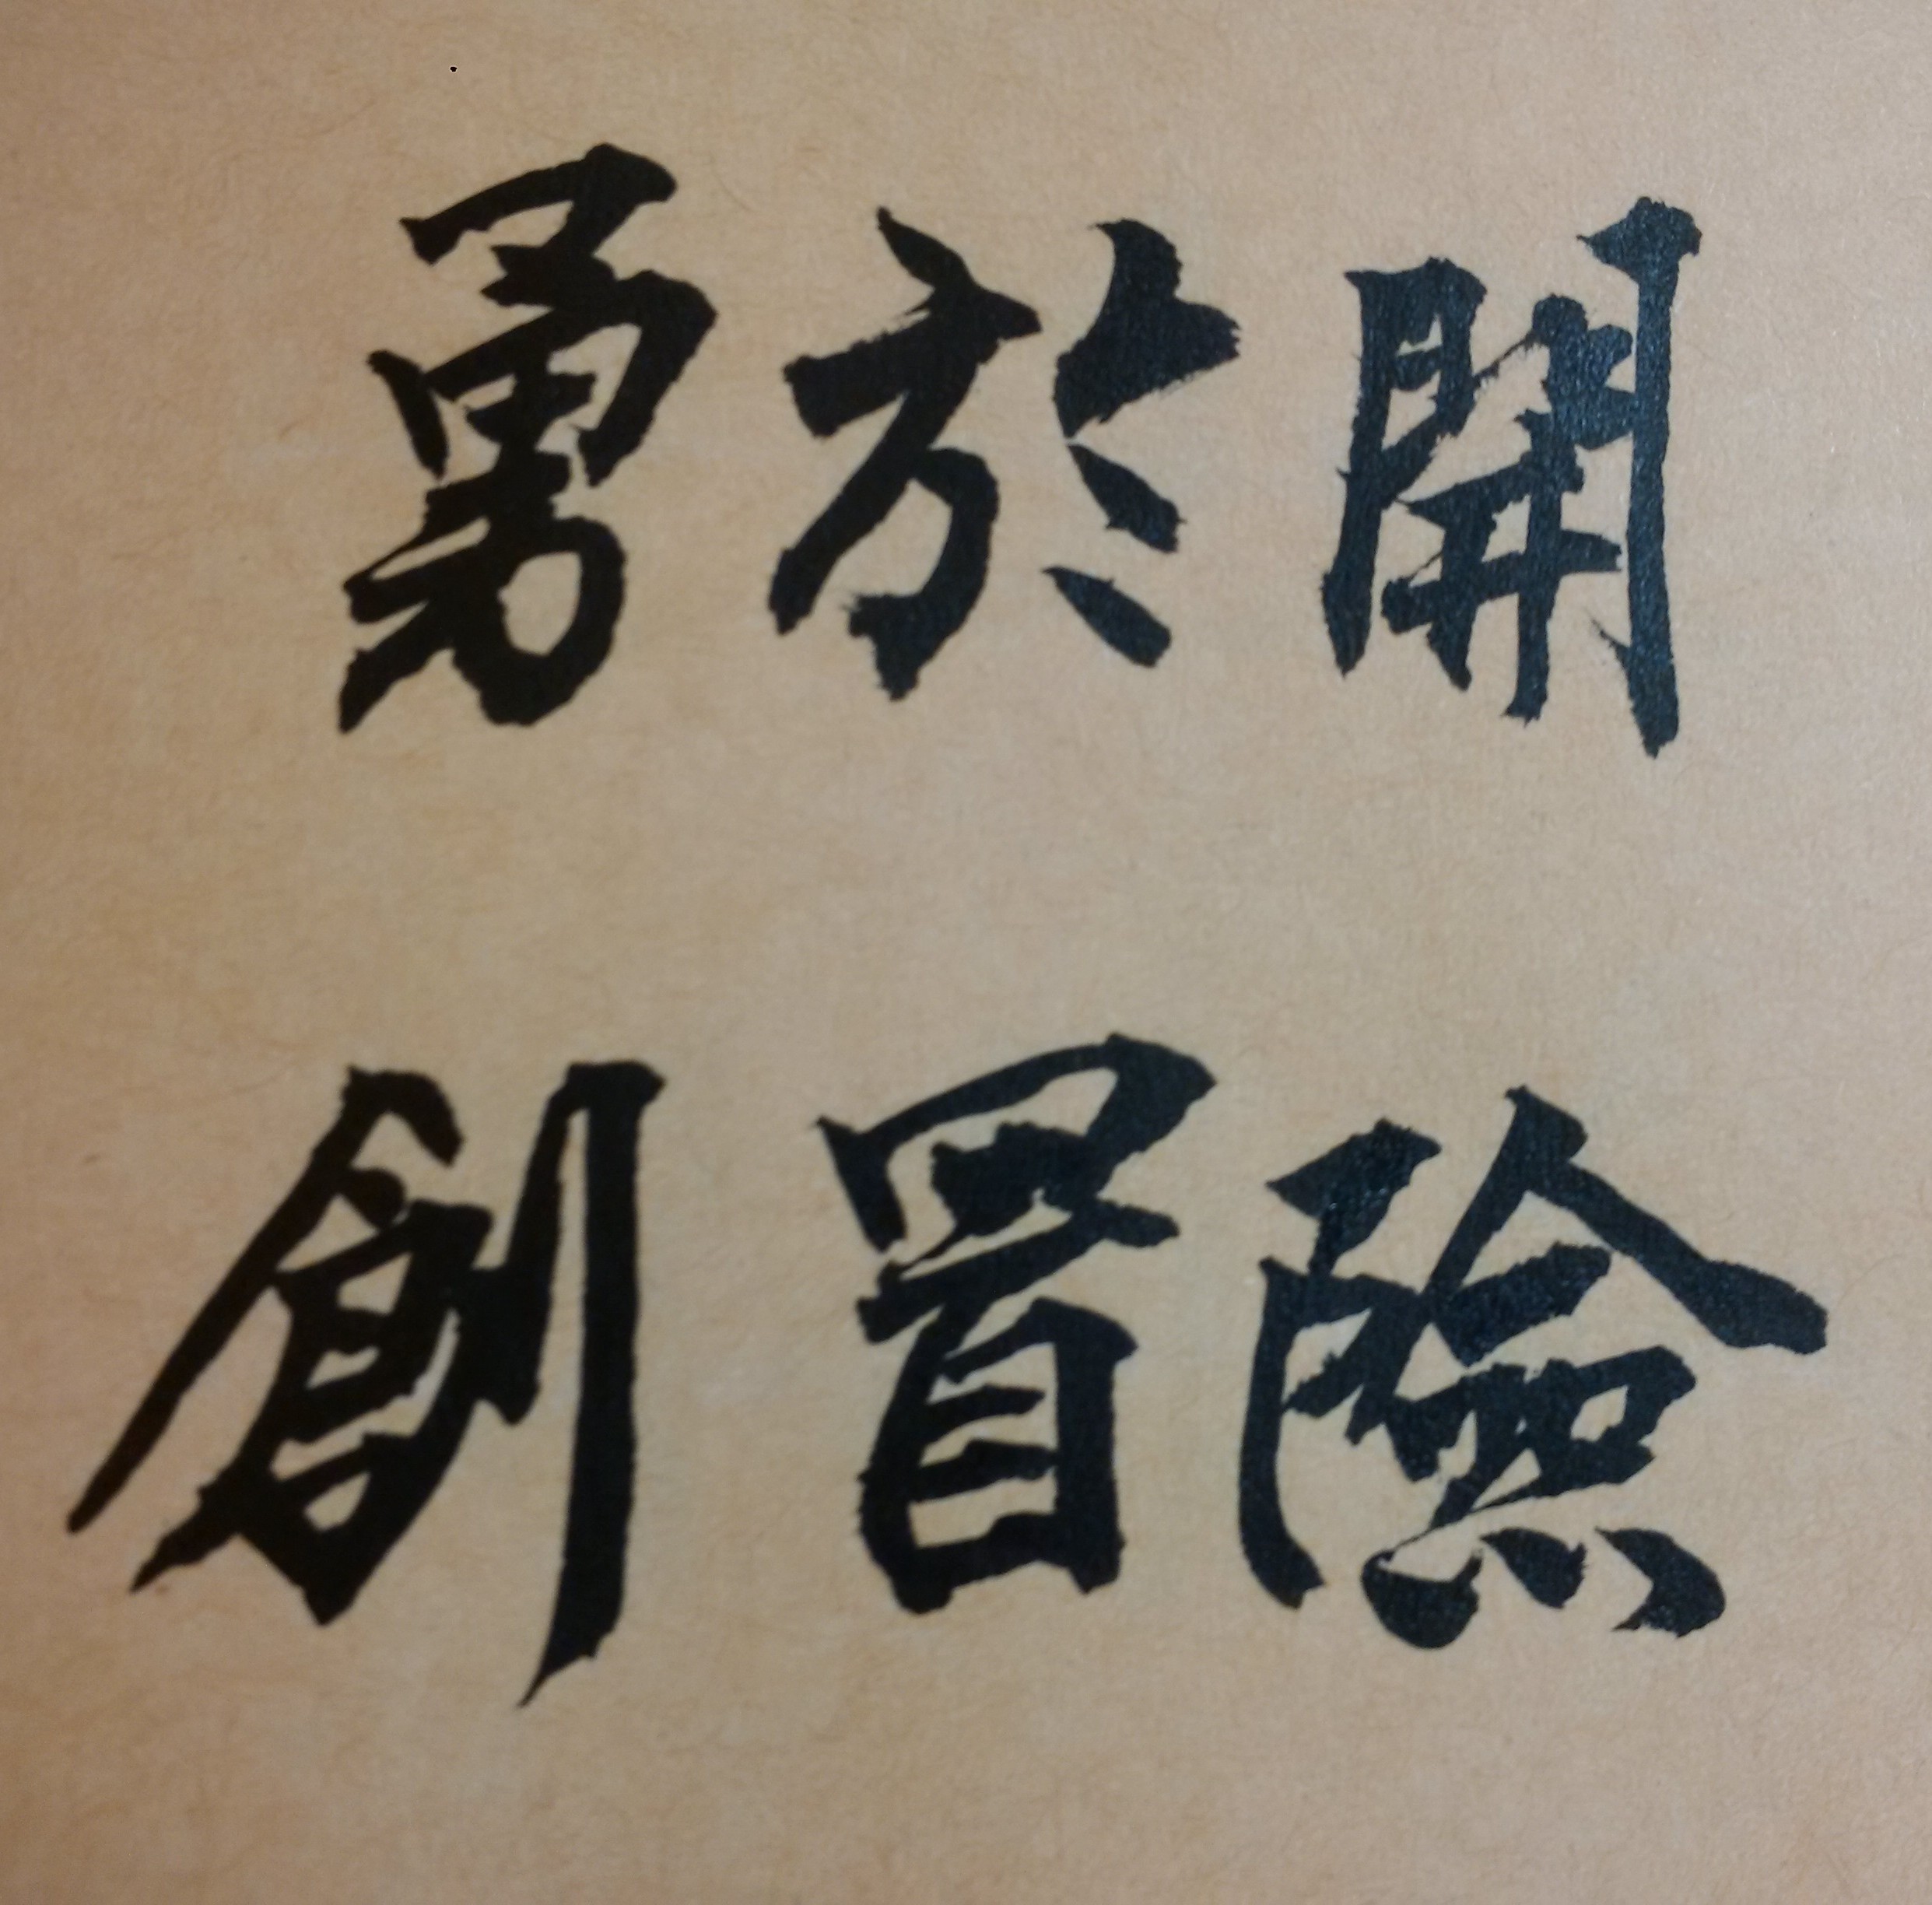 勇於開
創冒險